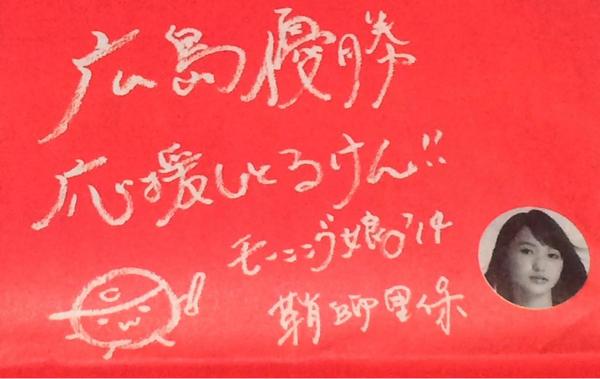 広島優勝
応援しとるけん!!
モーニング娘。'14
鞘師里保